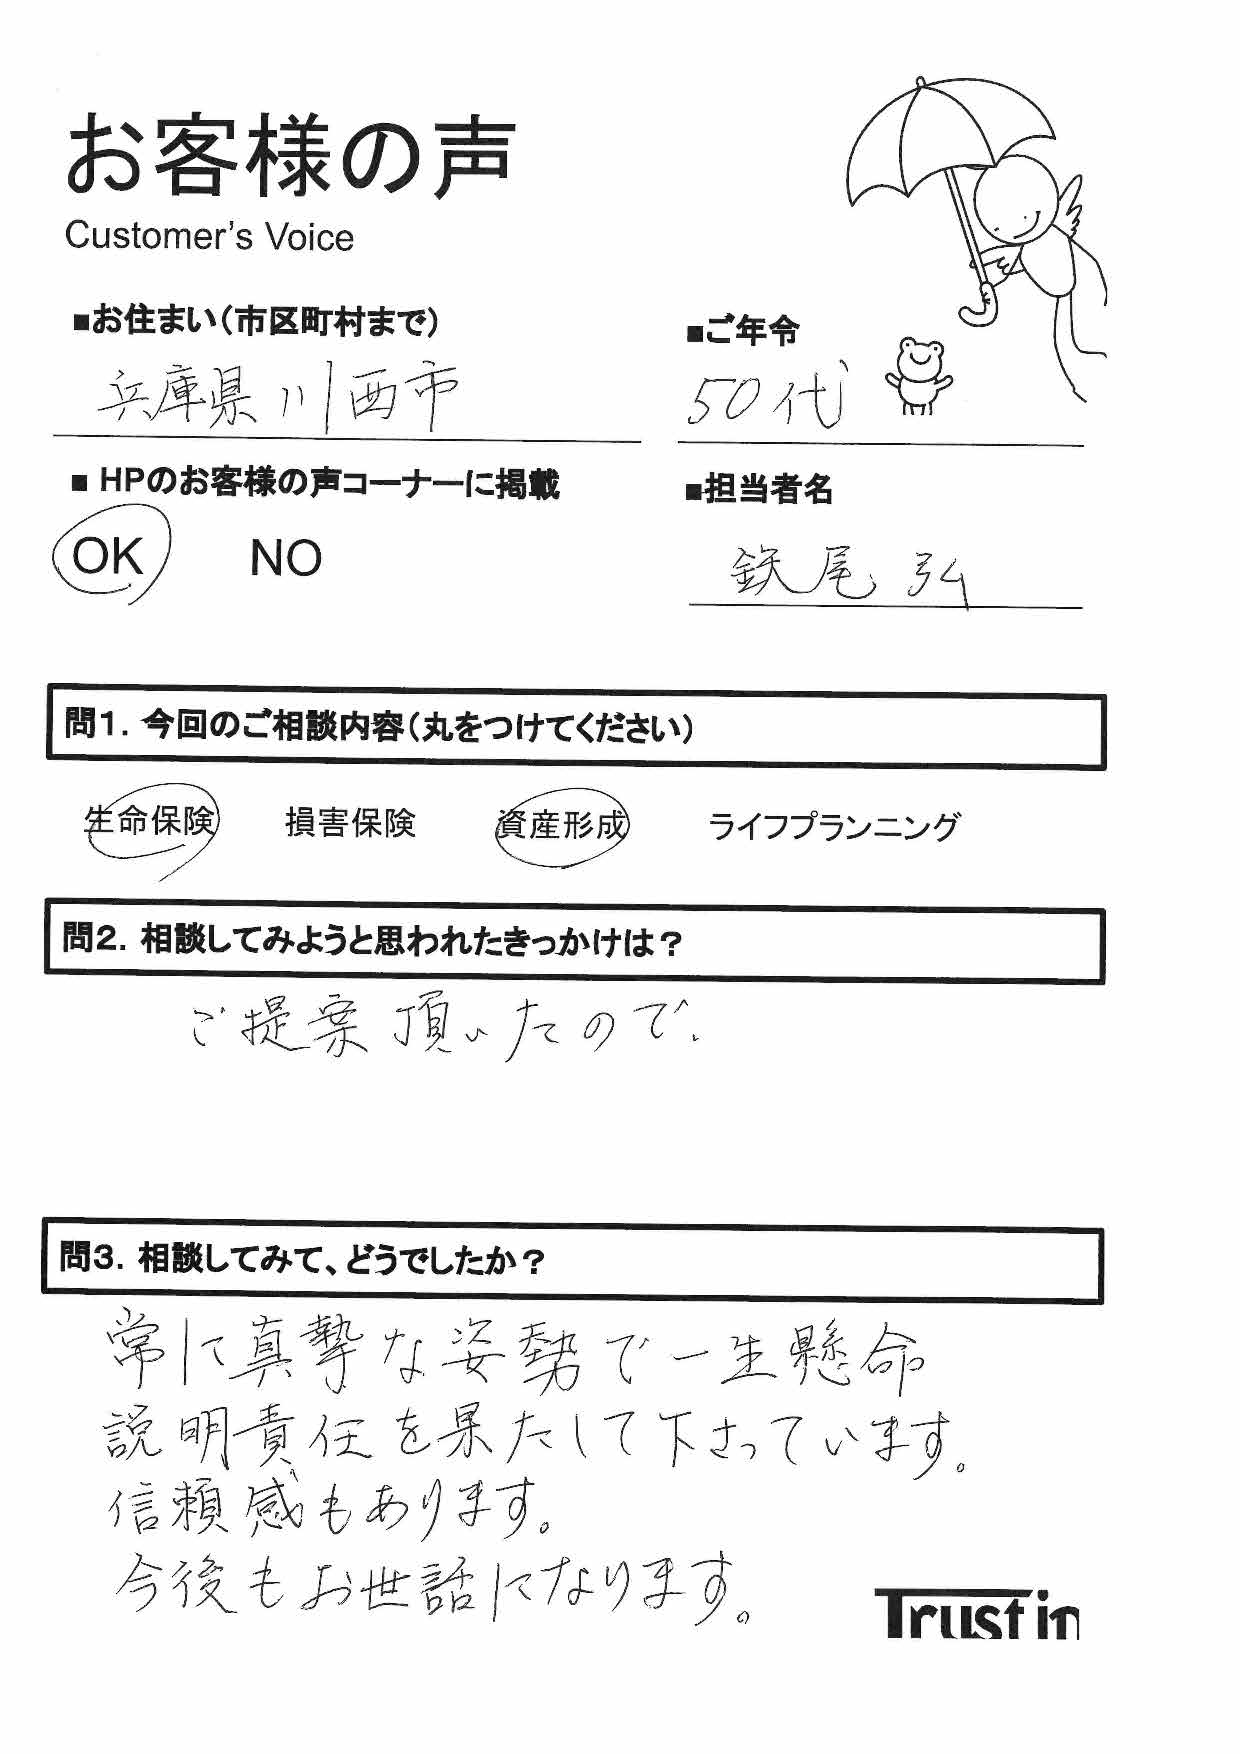 お客様の声
Customer's Voice
■お住まい(市区町村まで)
兵庫県川西市
■ご年令
50代
■HPのお客様の声コーナーに掲載
OK NO
■担当者名
鉄尾 弘
問1. 今回のご相談内容(丸をつけてください)
生命保険 損害保険 資産形成 ライフプランニング
問2. 相談してみようと思われたきっかけは?
ご提案頂いたので、
問3. 相談してみて、どうでしたか?
常に真摯な姿勢で一生懸命
説明責任を果たして下さっています。
信頼感もあります。
今後もお世話になります。
Trust in